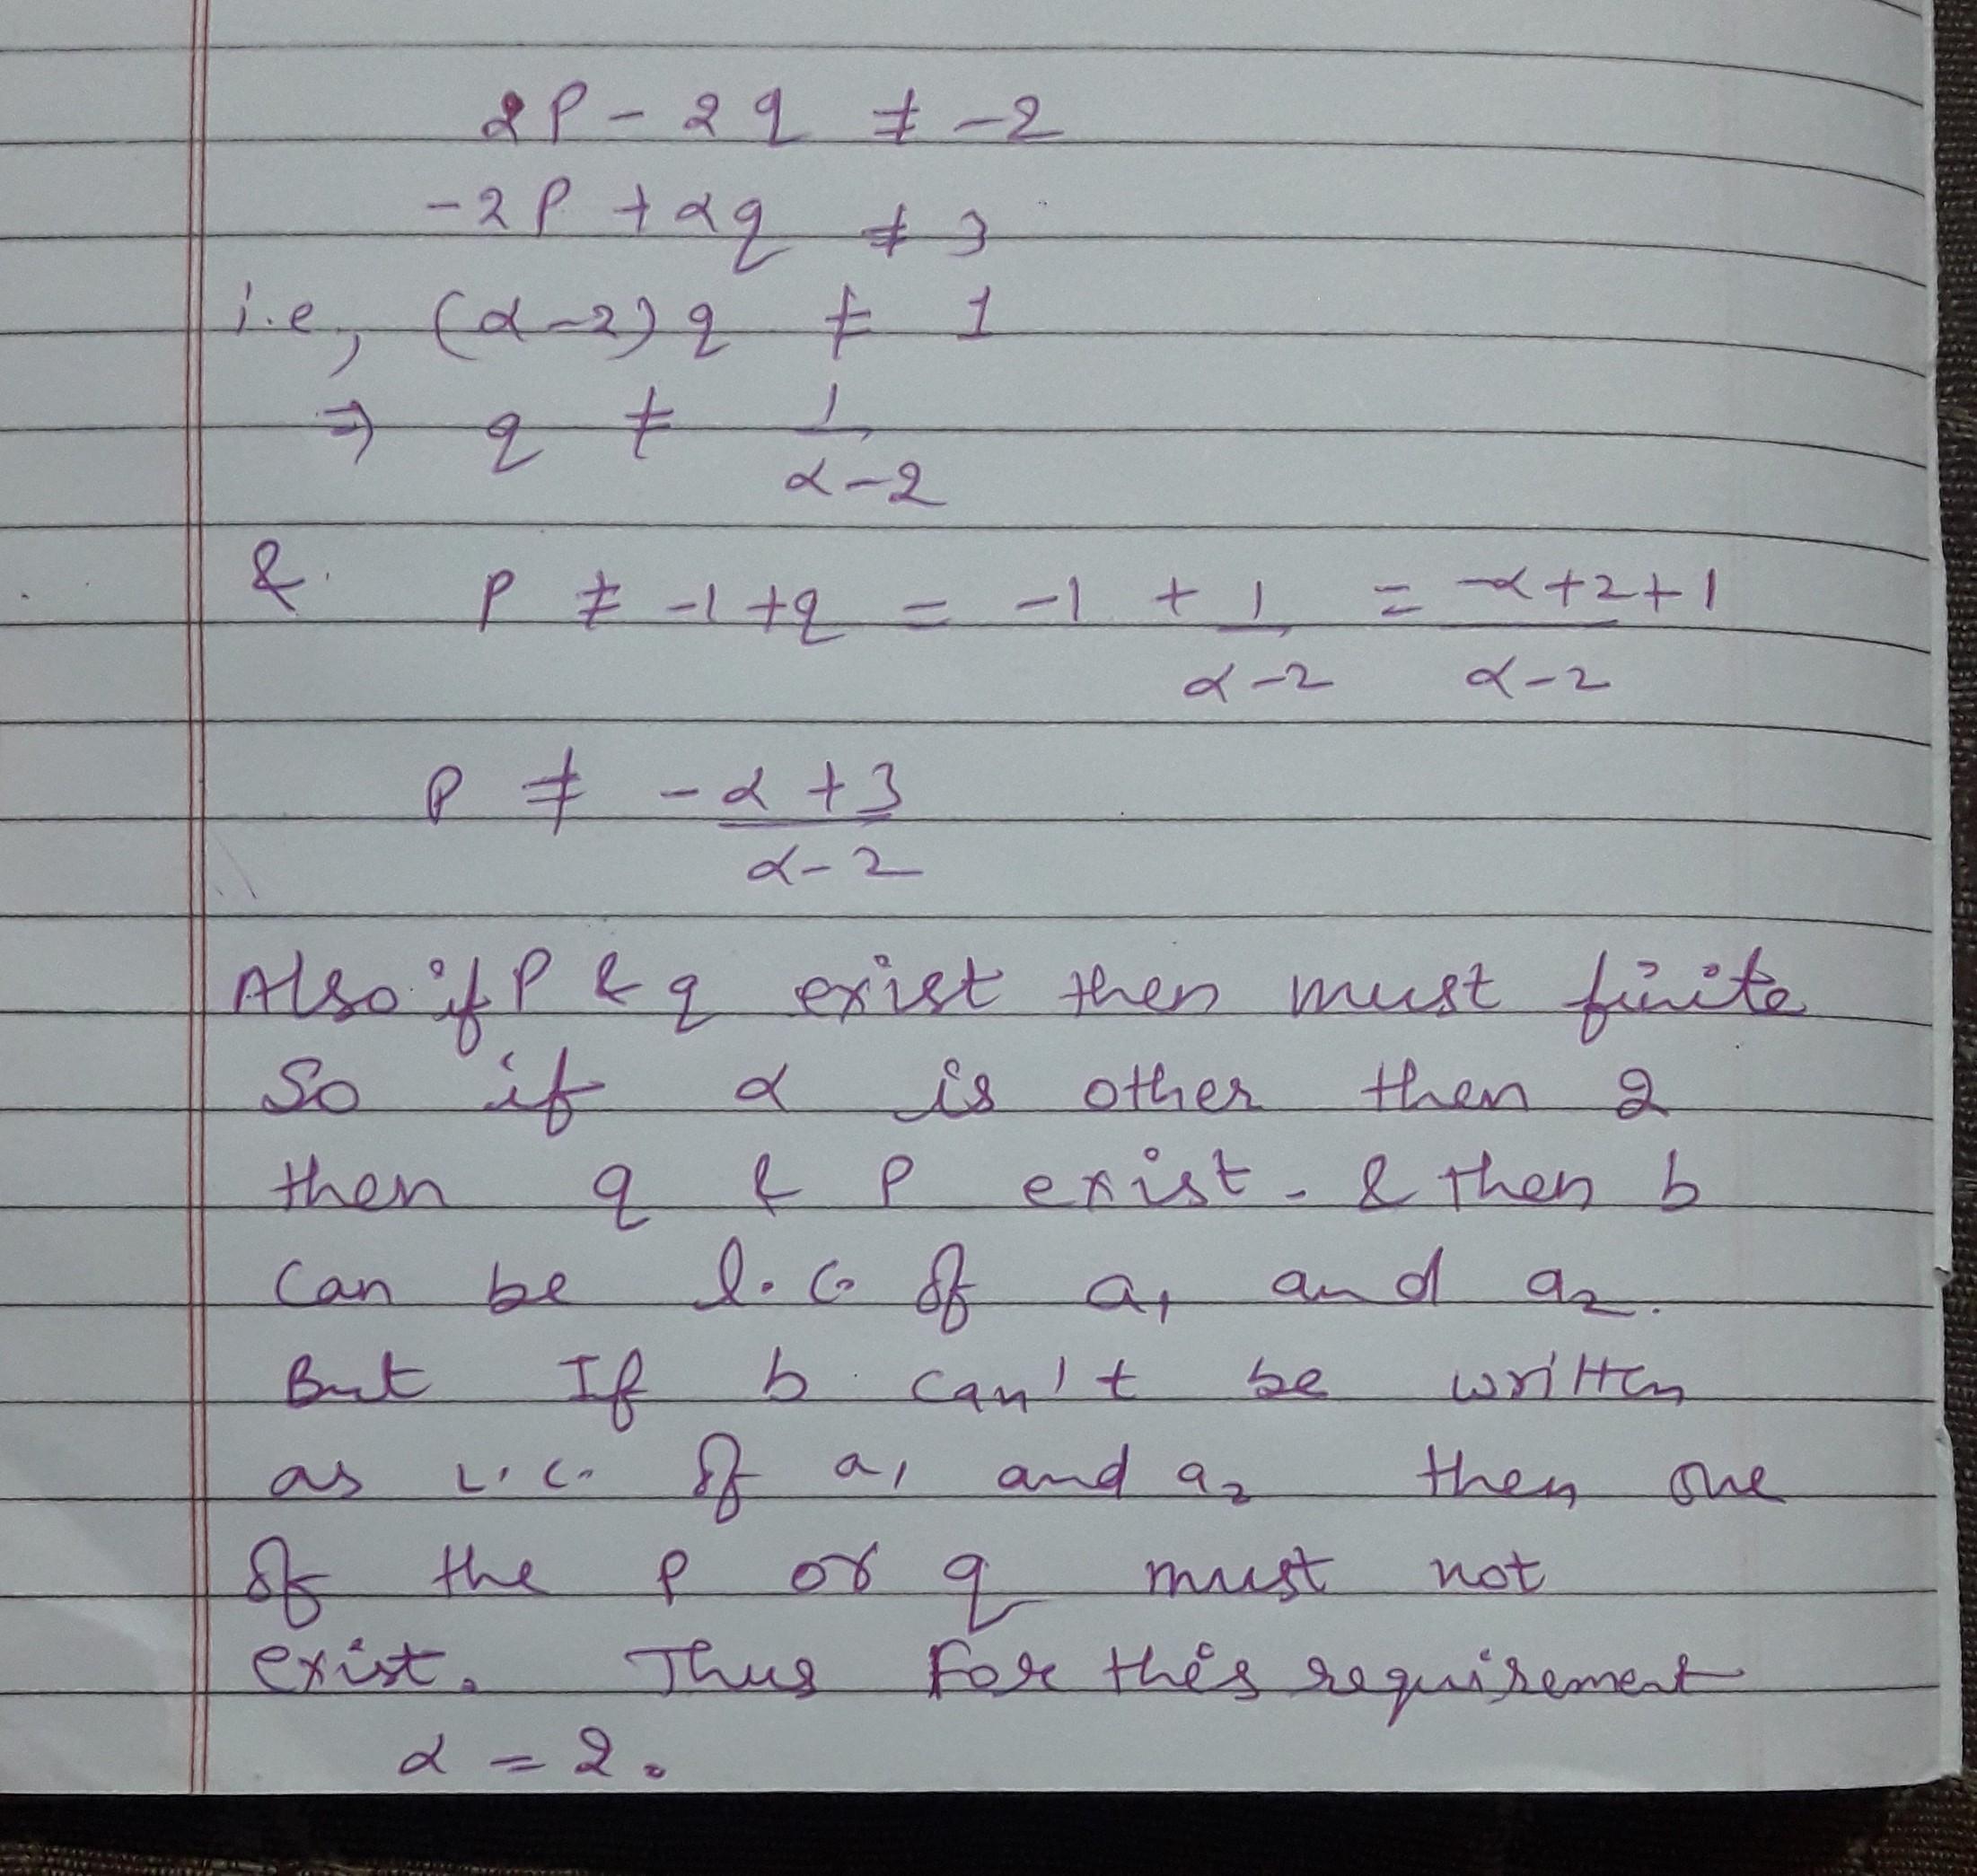 2P - 2q ≠ -2
-2P + αq ≠ 3
i.e, (α-2) q ≠ 1
⇒ q ≠ 1/(α-2)
& P ≠ -1+q = -1 + 1/(α-2) = (-α+2+1)/(α-2)
P ≠ (-α+3)/(α-2)
Also if P & q exist then must finite
So if α is other then 2
then q & P exist. & then b
can be l.c. of a₁ and a₂.
But If b can't be written
as L.C. of a₁ and a₂ then one
of the P or q must not
exist. Thus For this requirement
α = 2.